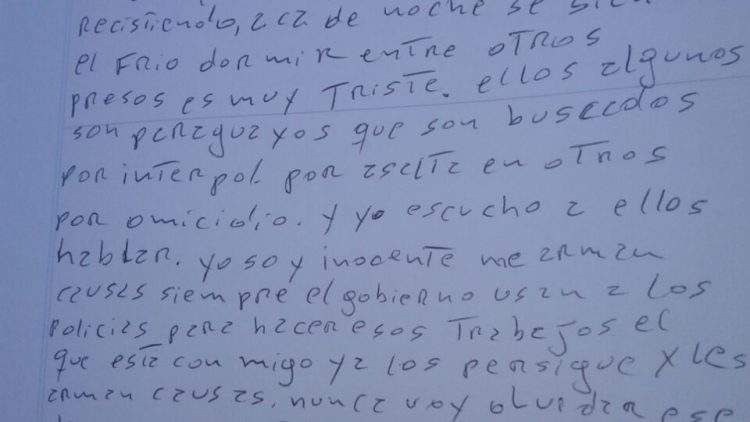 Recistiendo, aca de noche se
el Frio dormir entre otros
presos es muy Triste. ellos algunos
son paraguayos que son buscados
por interpol por asalta en otros
por omicidio. y yo escucho a ellos
hablar. yo soy inocente me arman
causas siempre el gobierno usan a los
policias para hacer esos Trabajos el
que esta con migo ya los persigue x les
arman causas. nunca voy olvidar ese